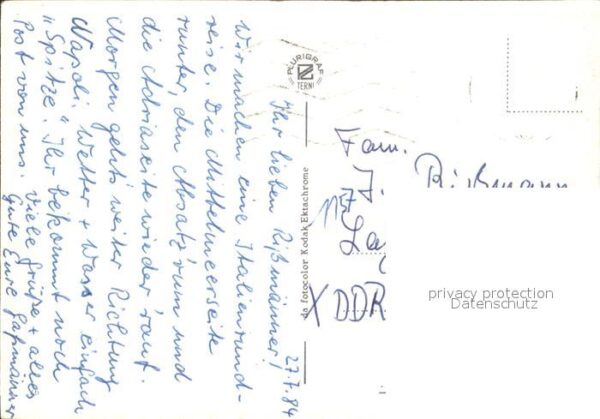 27.7.84
Ihr lieben Rißmänner!
Wir machen eine Italienrund-
reise. Die Mittelmeerseite
runter, den Absatz rum und
die Adriaseite wieder rauf.
Morgen geht's weiter Richtung
Napoli. Wetter + Wasser einfach
"Spitze". Ihr bekommt noch
Post von uns. Viele Grüße + alles
Gute Eure
PLURIGRAF
TERNI
da fotocolor Kodak Ektachrome
Fam.
J. Rißmann
1157
La
X DDR
privacy protection
Datenschutz